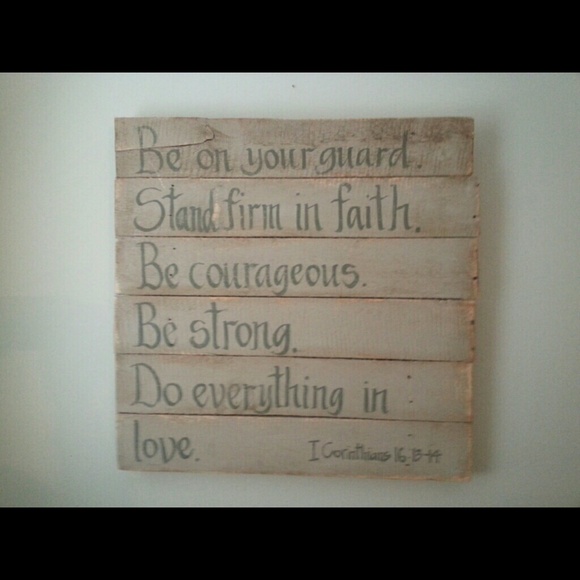 Be on your guard.
Stand firm in faith.
Be courageous.
Be strong.
Do everything in
love.
I Corinthians 16, 13-14